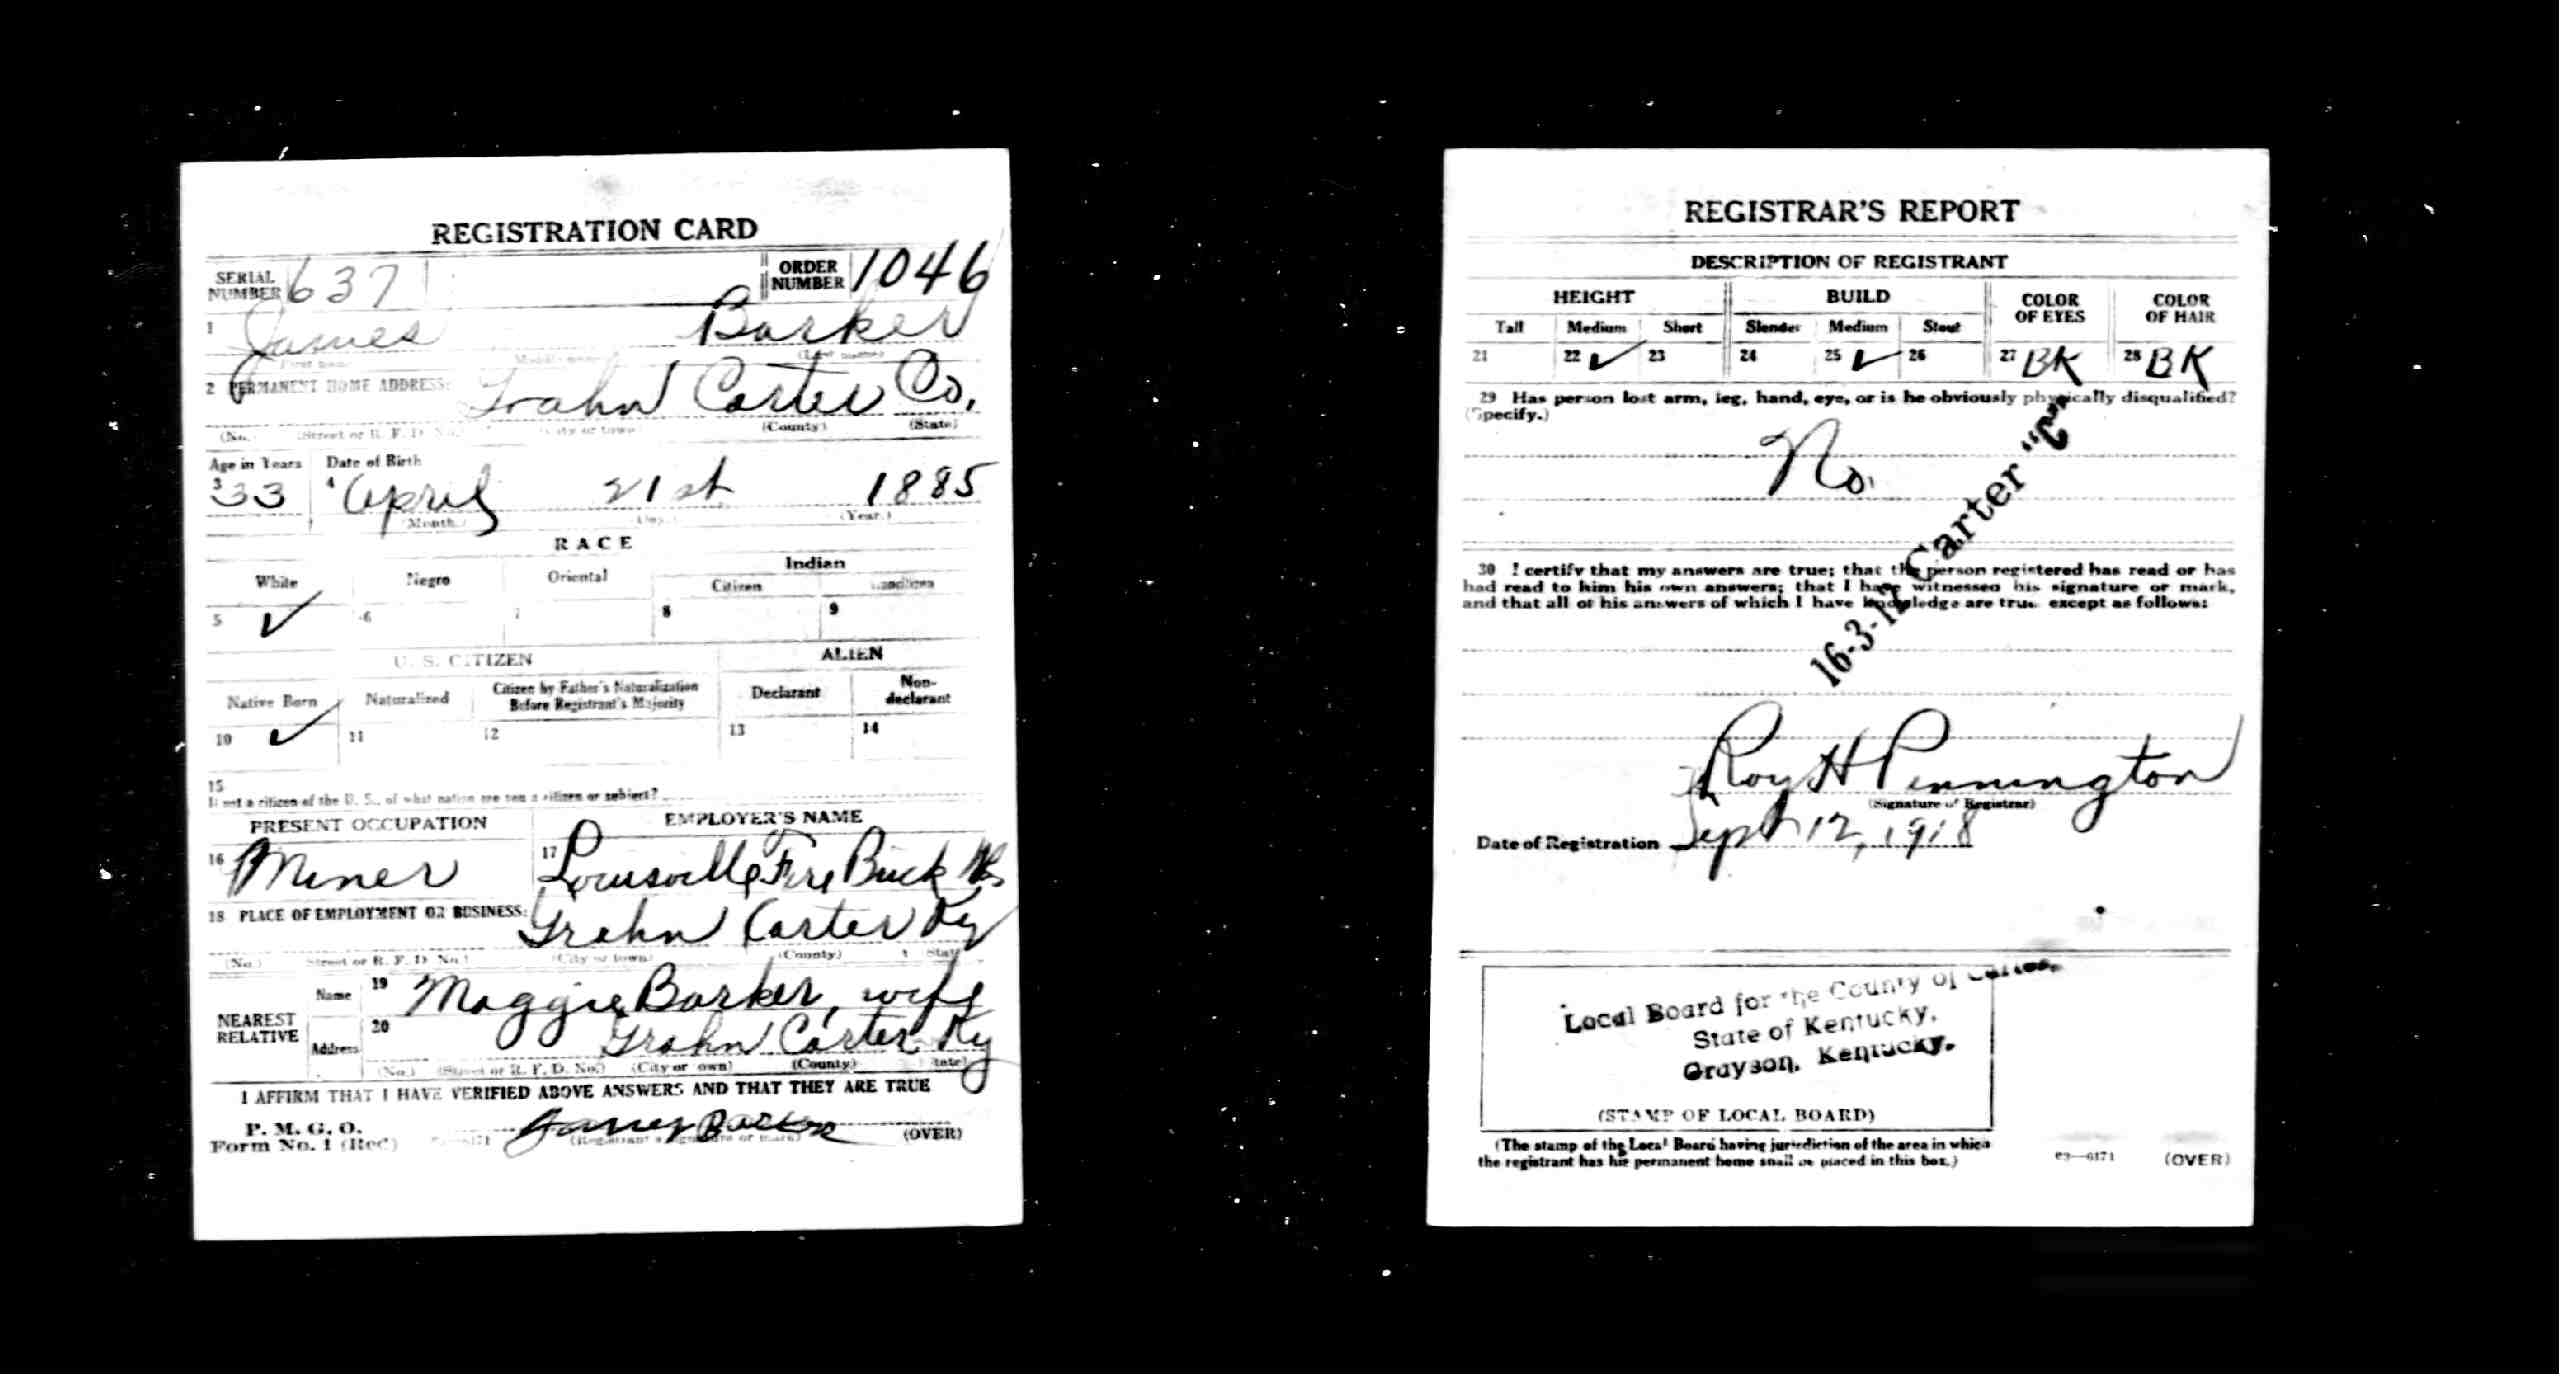 REGISTRATION CARD
SERIAL NUMBER 637 ORDER NUMBER 1046
1 James Barker
(First name) (Middle name) (Last name)
2 PERMANENT HOME ADDRESS: Grahn Carter Co.
(No.) (Street or R. F. D. No.) (City or town) (County) (State)
Age in Years Date of Birth
3 33 4 April 21st 1885
(Month.) (Day.) (Year.)
RACE
White Negro Oriental Indian
Citizen Noncitizen
5 ✓ 6 7 8 9
U. S. CITIZEN ALIEN
Native Born Naturalized Citizen by Father's Naturalization Before Registrant's Majority Declarant Non-declarant
10 ✓ 11 12 13 14
15
If not a citizen of the U. S., of what nation are you a citizen or subject?
PRESENT OCCUPATION EMPLOYER'S NAME
16 Miner 17 Louisville Fire Brick
18 PLACE OF EMPLOYMENT OR BUSINESS: Grahn Carter Ky
(No.) (Street or R. F. D. No.) (City or town) (County) (State)
NEAREST RELATIVE
Name 19 Maggie Barker, wife
Address 20 Grahn Carter Ky
(No.) (Street or R. F. D. No.) (City or town) (County) (State)
I AFFIRM THAT I HAVE VERIFIED ABOVE ANSWERS AND THAT THEY ARE TRUE
P. M. G. O.
Form No. 1 (Red) James Barker (OVER)
(Registrant's signature or mark)
REGISTRAR'S REPORT
DESCRIPTION OF REGISTRANT
HEIGHT BUILD COLOR OF EYES COLOR OF HAIR
Tall Medium Short Slender Medium Stout
21 22 ✓ 23 24 25 ✓ 26 27 BK 28 BK
29 Has person lost arm, leg, hand, eye, or is he obviously physically disqualified?
(Specify.)
No.
16-3-12 Carter "C"
30 I certify that my answers are true; that the person registered has read or has
had read to him his own answers; that I have witnessed his signature or mark,
and that all of his answers of which I have knowledge are true, except as follows:
Roy H Pennington
(Signature of Registrar)
Date of Registration Sept 12, 1918
Local Board for the County of Carter,
State of Kentucky,
Grayson, Kentucky.
(STAMP OF LOCAL BOARD)
(The stamp of the Local Board having jurisdiction of the area in which
the registrant has his permanent home shall be placed in this box.)
03—6171 (OVER)